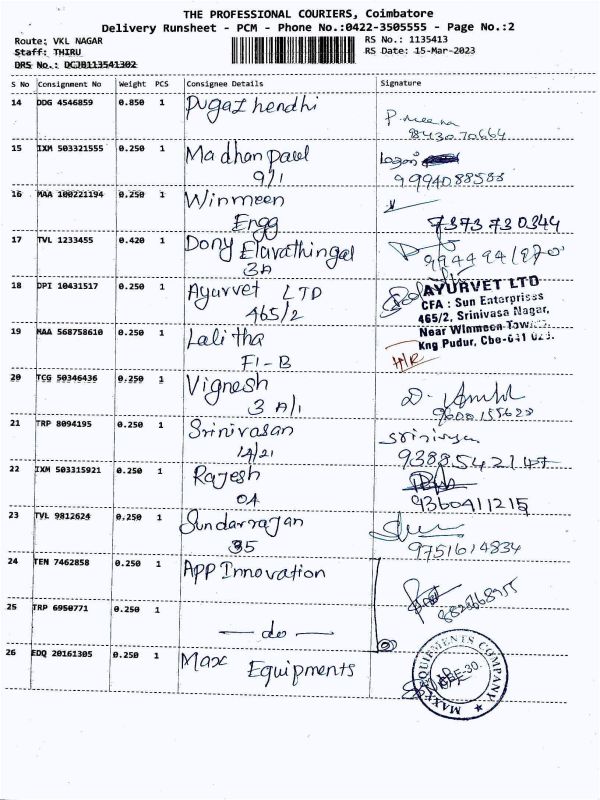 THE PROFESSIONAL COURIERS, Coimbatore
Delivery Runsheet - PCM - Phone No.:0422-3505555 - Page No.:2
Route: VKL NAGAR RS No.: 1135413
Staff: THIRU RS Date: 15-Mar-2023
DRS No.: DCJB113541302
S No Consignment No Weight PCS Consignee Details Signature
14 DDG 4546859 0.850 1 Pugazhendhi
P. Meena
15 IXM 503321555 0.250 1 Madhan paul
9/1
9994088583
16 MAA 100221194 0.250 1 Winmeen
Engg
7373730344
17 TVL 1233455 0.420 1 Dony Elavathingal
3A
18 DPI 10431517 0.250 1 Ayurvet LTD
465/2
AYURVET LTD
CFA : Sun Enterprises
465/2, Srinivasa Nagar,
Near Winmeen Tower,
Kng Pudur, Cbe-641
19 MAA 568758610 0.250 1 Lalitha
F1-B
H/R
20 TCG 50346436 0.250 1 Vignesh
3 A/1
21 TRP 8094195 0.250 1 Srinivasan
14/21
Srinivasan
9388542147
22 IXM 503315921 0.250 1 Rajesh
04
9360411215
23 TVL 9812624 0.250 1 Sundarrajan
35
9751614834
24 TEN 7462858 0.250 1 APP Innovation
25 TRP 6950771 0.250 1
— do —
26 EDQ 20161305 0.250 1 Max Equipments
EQUIPMENTS COMPANY